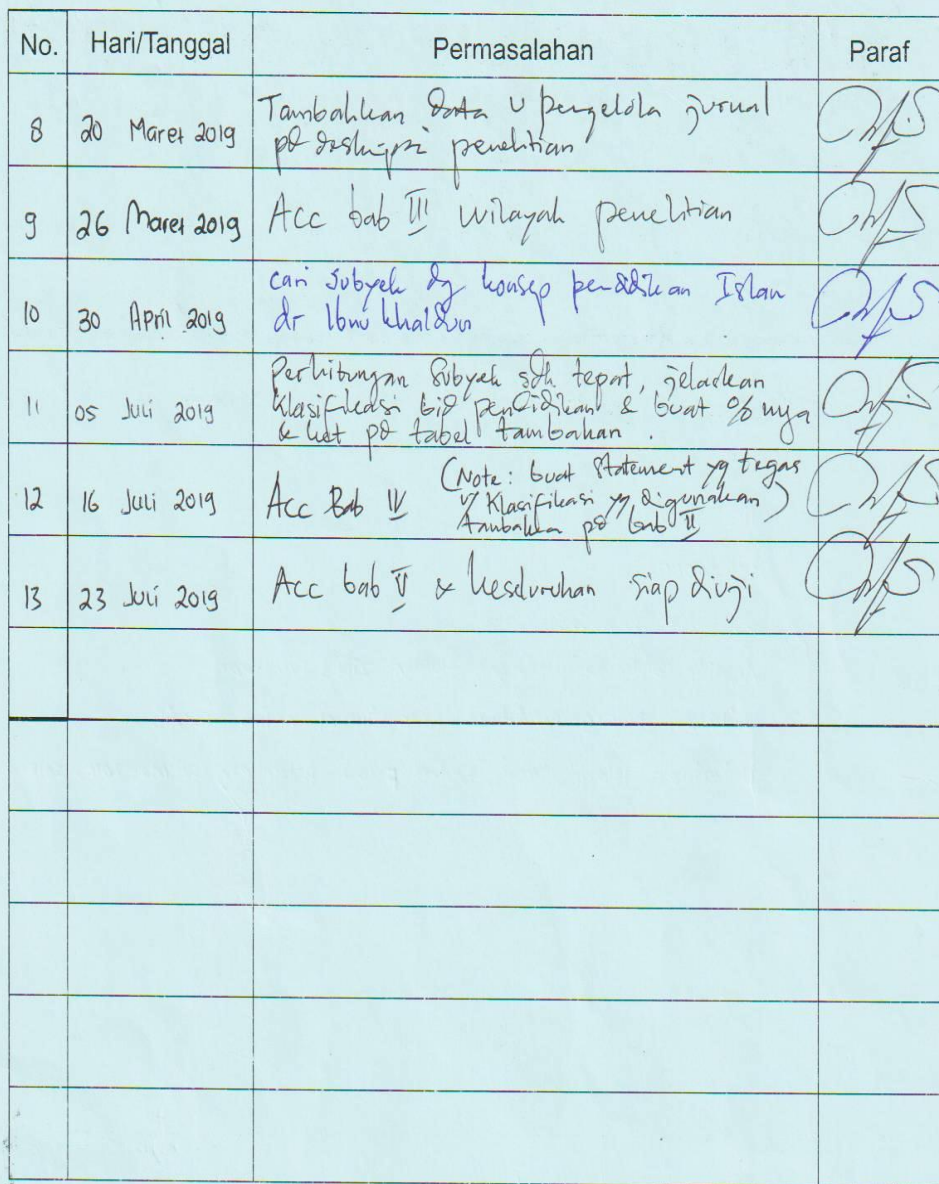 No. Hari/Tanggal Permasalahan Paraf
8 20 Maret 2019 Tambahkan data u pengelola jurnal
pd deskripsi penelitian
9 26 Maret 2019 Acc bab III wilayah penelitian
10 30 April 2019 cari subyek dg konsep pendidikan Islam
dr Ibnu Khaldun
11 05 Juli 2019 Perhitungan subyek sdh tepat, jelaskan
klasifikasi bid pendidikan & buat % nya
& ket pd tabel tambahan.
12 16 Juli 2019 Acc Bab IV (Note: buat statement yg tegas
u/ klasifikasi yg digunakan)
tambahkan pd bab II
13 23 Juli 2019 Acc bab V & keseluruhan siap diuji